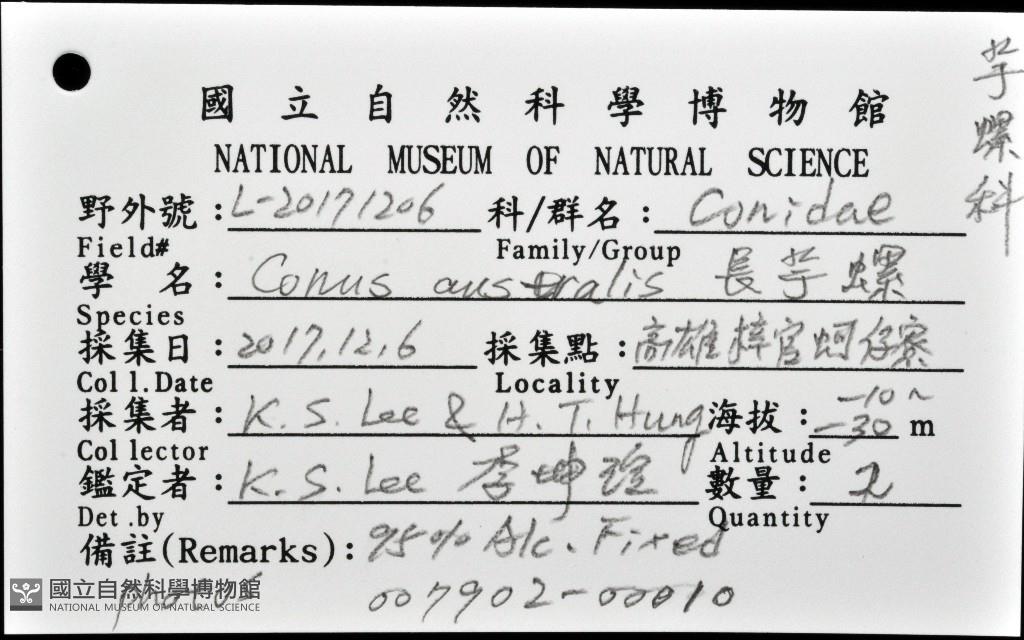 芋螺科
國立自然科學博物館
NATIONAL MUSEUM OF NATURAL SCIENCE
野外號：L-20171206 科/群名：Conidae
Field# Family/Group
學名：Conus australis 長芋螺
Species
採集日：2017.12.6 採集點：高雄梓官蚵仔寮
Coll.Date Locality
採集者：K.S. Lee & H.T. Hung 海拔：-10~-30 m
Collector Altitude
鑑定者：K.S. Lee 李坤瑄 數量：2
Det.by Quantity
備註(Remarks)：95% Alc. Fixed
國立自然科學博物館
NATIONAL MUSEUM OF NATURAL SCIENCE
007902-00010